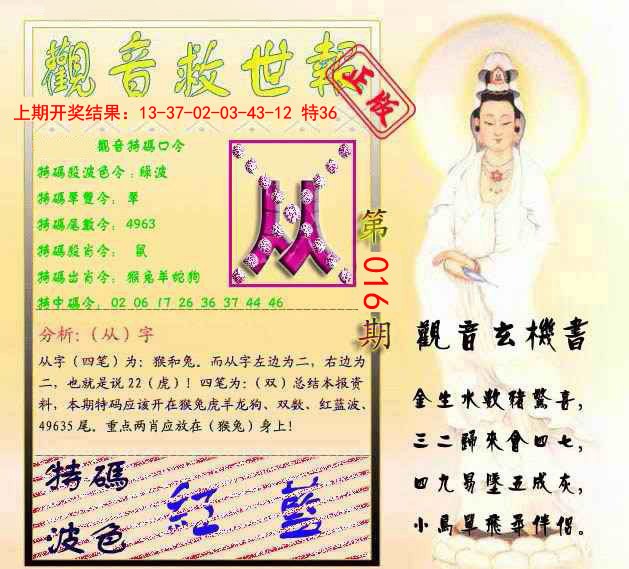 觀音救世報
正版
上期开奖结果：13-37-02-03-43-12 特36
觀音特碼口令
特碼殺波色令：綠波
特碼單雙令：單
特碼尾數令：4963
特碼殺肖令：鼠
特碼出肖令：猴兔羊蛇狗
特中碼令：02 06 17 26 36 37 44 46
从
第016期
分析:（从）字
从字（四笔）为：猴和兔。而从字左边为二，右边为
二，也就是说22（虎）！四笔为:（双）总结本报资
料，本期特码应该开在猴兔虎羊龙狗、双数、红蓝波、
49635尾。重点两肖应放在（猴兔）身上！
特碼
波色
紅 藍
觀音玄機書
金生水數豬驚喜，
三二歸來會四七，
四九易墜五成灰，
小鳥單飛尋伴侶。